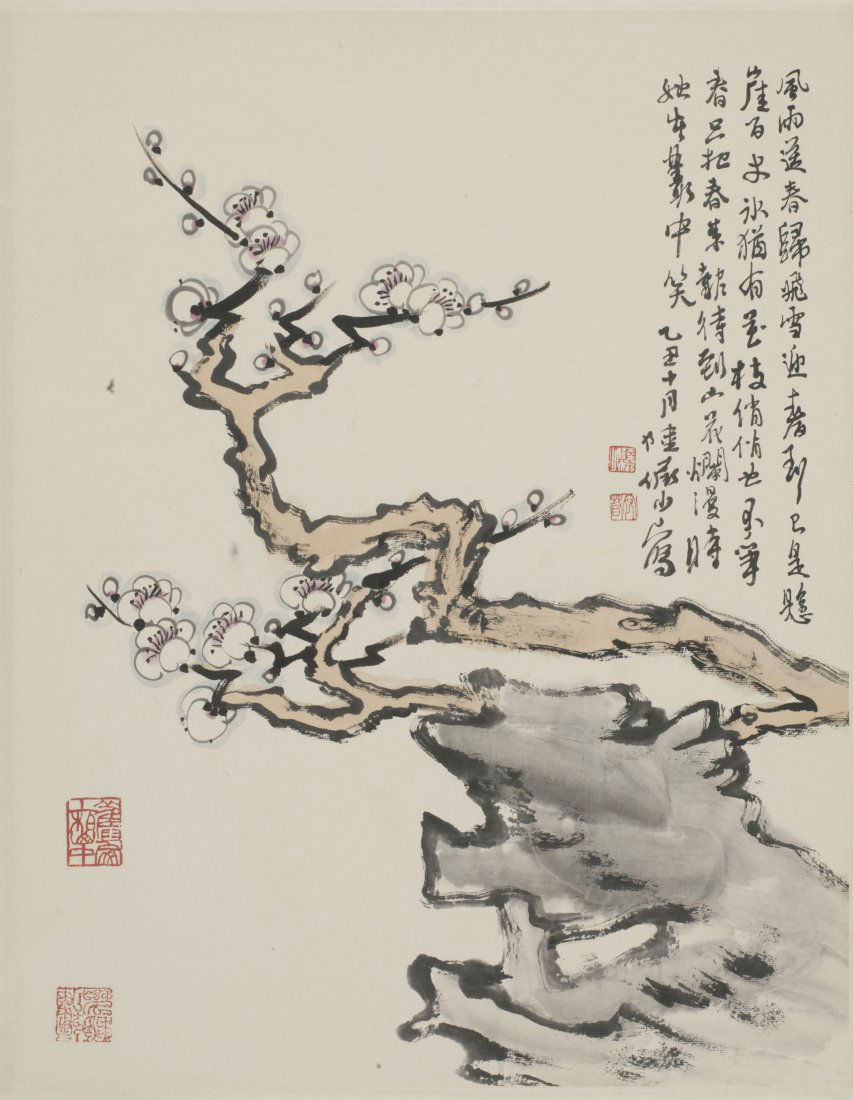 風雨送春歸飛雪迎春到已是懸
崖百丈冰猶有花枝俏俏也不爭
春只把春來報待到山花爛漫時
她在叢中笑 乙丑十月陸儼少寫